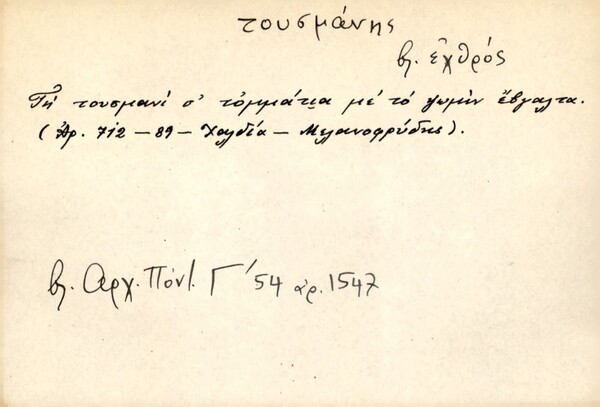 τουσμάνης
βλ. ἐχθρός
Τῆ τουσμανί σ' τὀμμάτια̤ μέ τό ψωμίν ἔβγαλτα.
(Ἀρ. 712 – 89 – Χαλδία – Μελανοφρύδης).
βλ. Αρχ. Πόντ. Γ' 54 ἀρ. 1547